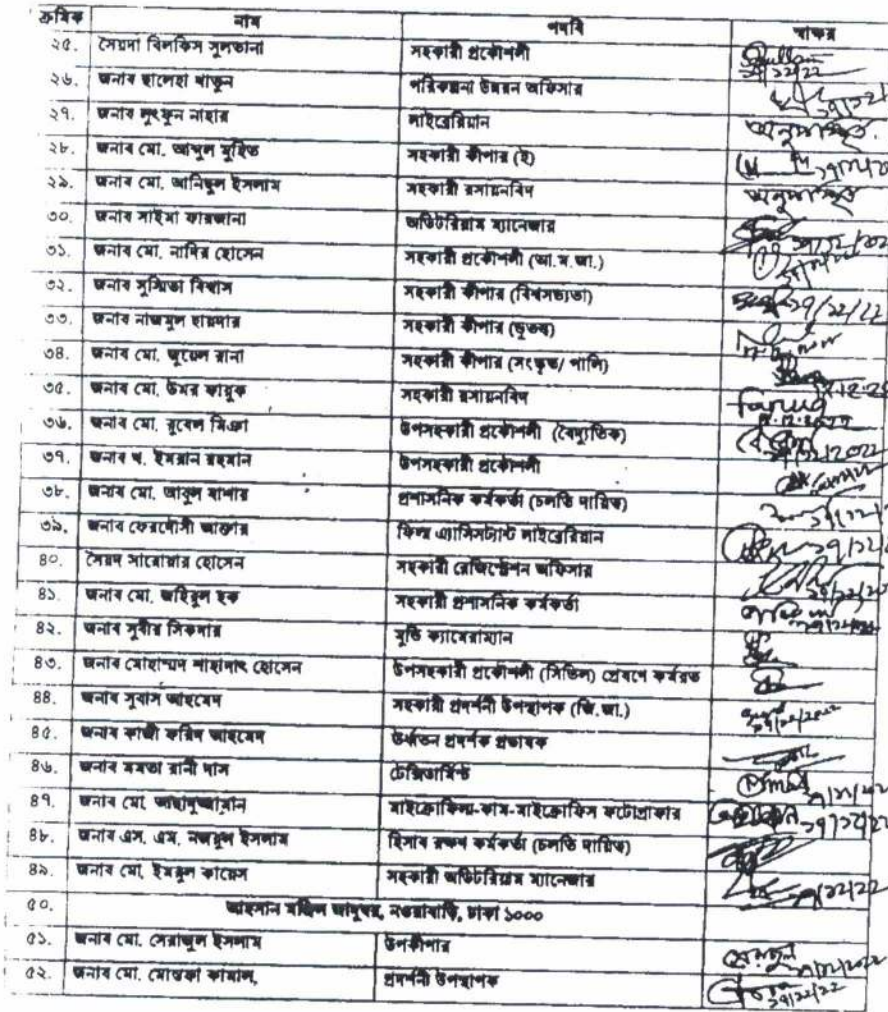 ক্রমিক নাম পদবি স্বাক্ষর
২৫. সৈয়দা বিলকিস সুলতানা সহকারী প্রকৌশলী
২৬. জনাব ছালেহা খাতুন পরিকল্পনা উন্নয়ন অফিসার
২৭. জনাব লুৎফুন নাহার লাইব্রেরিয়ান অনুপস্থিত
২৮. জনাব মো. আব্দুল মুহিত সহকারী কীপার (ই)
২৯. জনাব মো. আনিছুল ইসলাম সহকারী রসায়নবিদ অনুপস্থিত
৩০. জনাব সাইমা ফারজানা অডিটরিয়াম ম্যানেজার
৩১. জনাব মো. নাদির হোসেন সহকারী প্রকৌশলী (আ.ম.জা.)
৩২. জনাব সুস্মিতা বিশ্বাস সহকারী কীপার (বিশ্বসভ্যতা) ২৭/১২/২২
৩৩. জনাব নাজমুল হায়দার সহকারী কীপার (ভূতত্ত্ব)
৩৪. জনাব মো. জুয়েল রানা সহকারী কীপার (সংস্কৃত/ পালি)
৩৫. জনাব মো. উমর ফারুক সহকারী রসায়নবিদ Faruq
৩৬. জনাব মো. রুবেল মিঞা উপসহকারী প্রকৌশলী (বৈদ্যুতিক)
৩৭. জনাব খ. ইমরান রহমান উপসহকারী প্রকৌশলী
৩৮. জনাব মো. আবুল বাশার প্রশাসনিক কর্মকর্তা (চলতি দায়িত্ব)
৩৯. জনাব ফেরদৌসী আক্তার ফিল্ম এ্যাসিসট্যান্ট লাইব্রেরিয়ান
৪০. সৈয়দ সারোয়ার হোসেন সহকারী রেজিস্ট্রেশন অফিসার
৪১. জনাব মো. জহিরুল হক সহকারী প্রশাসনিক কর্মকর্তা
৪২. জনাব সুবীর সিকদার মুভি ক্যামেরাম্যান
৪৩. জনাব মোহাম্মদ শাহাদাৎ হোসেন উপসহকারী প্রকৌশলী (সিভিল) প্রেষণে কর্মরত
৪৪. জনাব সুবাস আহমেদ সহকারী প্রদর্শনী উপস্থাপক (জি.জা.)
৪৫. জনাব কাজী করিম আহমেদ উর্ধ্বতন প্রদর্শক প্রভাষক
৪৬. জনাব মমতা রানী দাস টেক্সিডার্মিস্ট
৪৭. জনাব মো. আছাদুজ্জামান মাইক্রোফিল্ম-কাম-মাইক্রোফিস ফটোগ্রাফার ২৭/১২/২২
৪৮. জনাব এস. এম. নজমুল ইসলাম হিসাব রক্ষণ কর্মকর্তা (চলতি দায়িত্ব)
৪৯. জনাব মো. ইমরুল কায়েস সহকারী অডিটরিয়াম ম্যানেজার
৫০. আহসান মঞ্জিল জাদুঘর, নওয়াববাড়ি, ঢাকা ১০০০
৫১. জনাব মো. সেরাজুল ইসলাম উপকীপার
৫২. জনাব মো. মোস্তফা কামাল, প্রদর্শনী উপস্থাপক ২৭/১২/২২